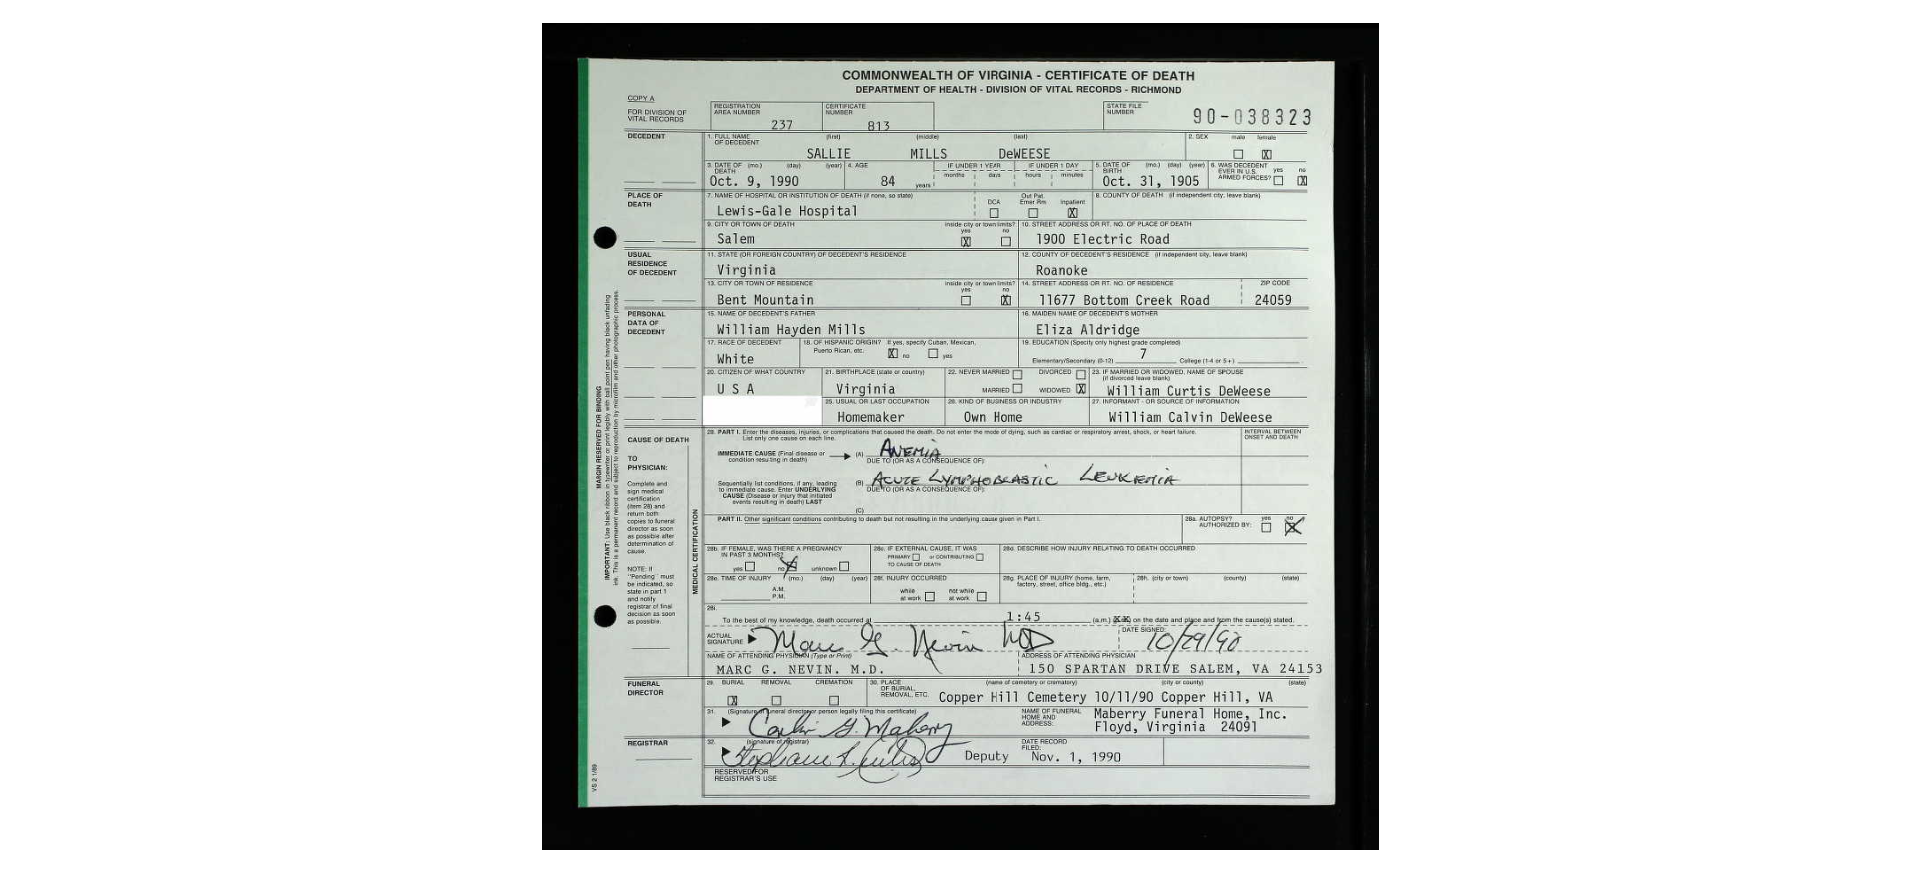 COMMONWEALTH OF VIRGINIA - CERTIFICATE OF DEATH
DEPARTMENT OF HEALTH - DIVISION OF VITAL RECORDS - RICHMOND
COPY A
FOR DIVISION OF VITAL RECORDS
REGISTRATION AREA NUMBER 237
CERTIFICATE NUMBER 813
STATE FILE NUMBER 90-038323
DECEDENT
1. FULL NAME OF DECEDENT (first) (middle) (last)
SALLIE MILLS DeWEESE
2. SEX male female X
3. DATE OF DEATH (mo.) (day) (year) Oct. 9, 1990
4. AGE 84 years
IF UNDER 1 YEAR months days
IF UNDER 1 DAY hours minutes
5. DATE OF BIRTH (mo.) (day) (year) Oct. 31, 1905
6. WAS DECEDENT EVER IN U.S. ARMED FORCES? yes no X
PLACE OF DEATH
7. NAME OF HOSPITAL OR INSTITUTION OF DEATH (if none, so state)
Lewis-Gale Hospital
DOA Out Pat. Emer Rm Inpatient X
8. COUNTY OF DEATH (if independent city, leave blank)
9. CITY OR TOWN OF DEATH inside city or town limits? yes no
Salem X
10. STREET ADDRESS OR RT. NO. OF PLACE OF DEATH
1900 Electric Road
USUAL RESIDENCE OF DECEDENT
11. STATE (OR FOREIGN COUNTRY) OF DECEDENT'S RESIDENCE
Virginia
12. COUNTY OF DECEDENT'S RESIDENCE (if independent city, leave blank)
Roanoke
13. CITY OR TOWN OF RESIDENCE inside city or town limits? yes no
Bent Mountain X
14. STREET ADDRESS OR RT. NO. OF RESIDENCE ZIP CODE
11677 Bottom Creek Road 24059
PERSONAL DATA OF DECEDENT
15. NAME OF DECEDENT'S FATHER
William Hayden Mills
16. MAIDEN NAME OF DECEDENT'S MOTHER
Eliza Aldridge
17. RACE OF DECEDENT
White
18. OF HISPANIC ORIGIN? If yes, specify Cuban, Mexican, Puerto Rican, etc. X no yes
19. EDUCATION (Specify only highest grade completed)
Elementary/Secondary (0-12) 7 College (1-4 or 5+)
20. CITIZEN OF WHAT COUNTRY
U S A
21. BIRTHPLACE (state or country)
Virginia
22. NEVER MARRIED DIVORCED
MARRIED WIDOWED X
23. IF MARRIED OR WIDOWED, NAME OF SPOUSE (if divorced leave blank)
William Curtis DeWeese
25. USUAL OR LAST OCCUPATION
Homemaker
26. KIND OF BUSINESS OR INDUSTRY
Own Home
27. INFORMANT - OR SOURCE OF INFORMATION
William Calvin DeWeese
CAUSE OF DEATH
TO PHYSICIAN:
Complete and sign medical certification (item 28) and return both copies to funeral director as soon as possible after determination of cause.
NOTE: If "Pending" must be indicated, so state in part 1 and notify registrar of final decision as soon as possible.
MEDICAL CERTIFICATION
28. PART I. Enter the diseases, injuries, or complications that caused the death. Do not enter the mode of dying, such as cardiac or respiratory arrest, shock, or heart failure.
List only one cause on each line.
INTERVAL BETWEEN ONSET AND DEATH
IMMEDIATE CAUSE (Final disease or condition resulting in death) (A) ANEMIA
DUE TO (OR AS A CONSEQUENCE OF):
Sequentially list conditions, if any, leading to immediate cause. Enter UNDERLYING CAUSE (Disease or injury that initiated events resulting in death) LAST
(B) ACUTE LYMPHOBLASTIC LEUKEMIA
DUE TO (OR AS A CONSEQUENCE OF):
(C)
PART II. Other significant conditions contributing to death but not resulting in the underlying cause given in Part I.
28a. AUTOPSY? AUTHORIZED BY: yes no X
28b. IF FEMALE, WAS THERE A PREGNANCY IN PAST 3 MONTHS? yes no X unknown
28c. IF EXTERNAL CAUSE, IT WAS PRIMARY or CONTRIBUTING TO CAUSE OF DEATH
28d. DESCRIBE HOW INJURY RELATING TO DEATH OCCURRED
28e. TIME OF INJURY (mo.) (day) (year) A.M. P.M.
28f. INJURY OCCURRED while at work not while at work
28g. PLACE OF INJURY (home, farm, factory, street, office bldg., etc.)
28h. (city or town) (county) (state)
28i.
To the best of my knowledge, death occurred at 1:45 (a.m.) XX on the date and place and from the cause(s) stated.
ACTUAL SIGNATURE Marc G. Nevin MD
DATE SIGNED: 10/29/90
NAME OF ATTENDING PHYSICIAN (Type or Print)
MARC G. NEVIN. M.D.
ADDRESS OF ATTENDING PHYSICIAN
150 SPARTAN DRIVE SALEM, VA 24153
FUNERAL DIRECTOR
29. BURIAL X REMOVAL CREMATION
30. PLACE OF BURIAL, REMOVAL, ETC. (name of cemetery or crematory) (city or county) (state)
Copper Hill Cemetery 10/11/90 Copper Hill, VA
31. (Signature of funeral director or person legally filing this certificate)
NAME OF FUNERAL HOME AND ADDRESS:
Maberry Funeral Home, Inc.
Floyd, Virginia 24091
REGISTRAR
32. (signature of registrar)
Deputy
DATE RECORD FILED:
Nov. 1, 1990
RESERVED FOR REGISTRAR'S USE
MARGIN RESERVED FOR BINDING
VS 2 1/89